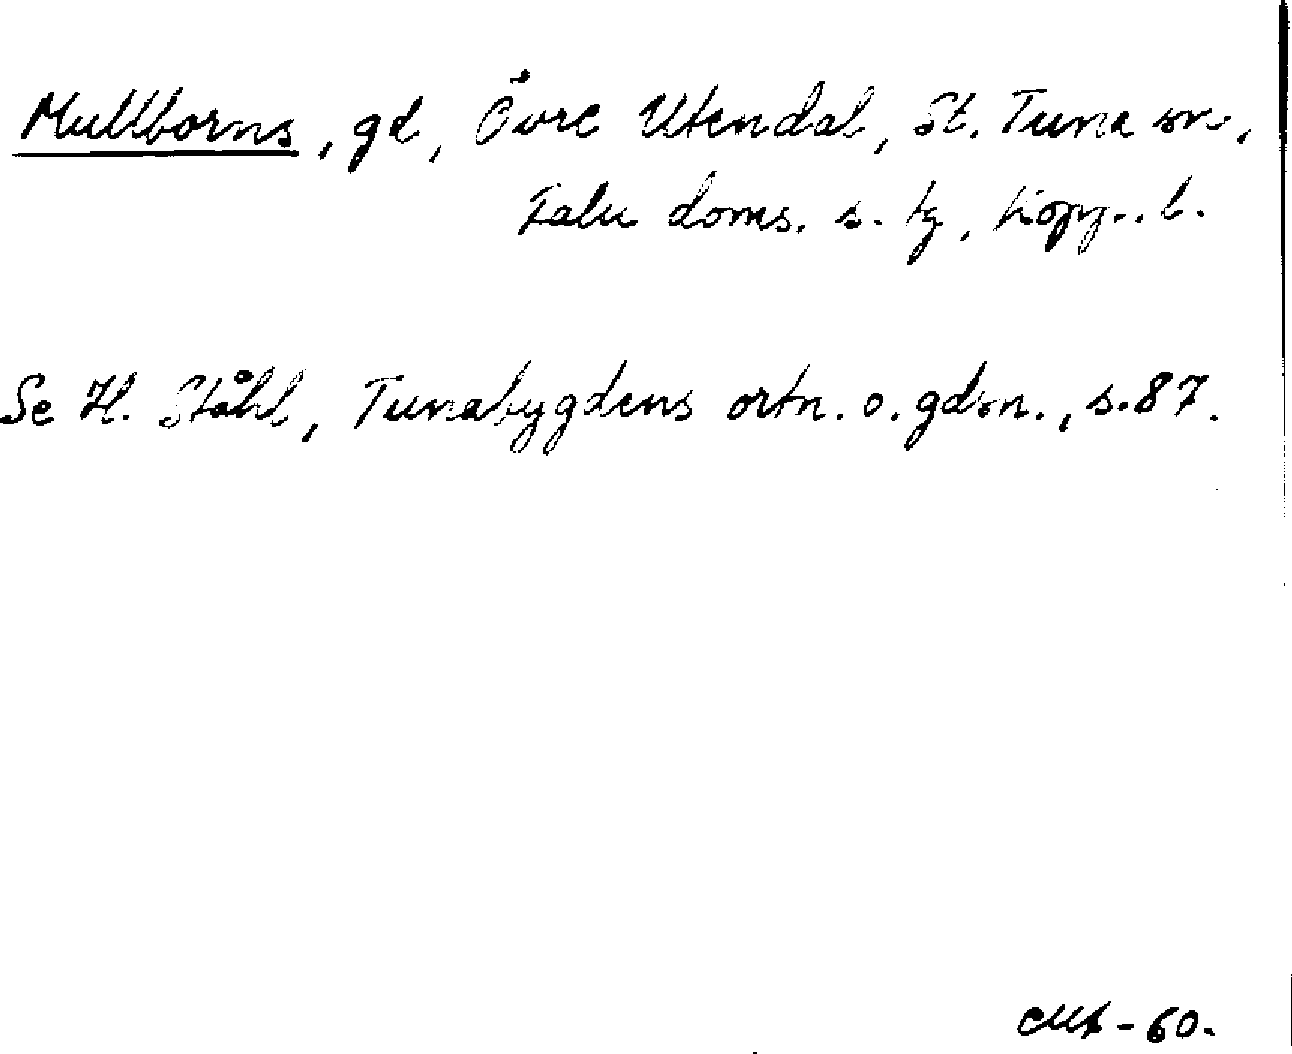 Mullborns, gd, Övre Utendal, St. Tuna sn,
Falu doms. s. tg, Kopp.. l.
Se H. Ståhl, Tunabygdens ortn. o. gdsn., s. 87.
-60.